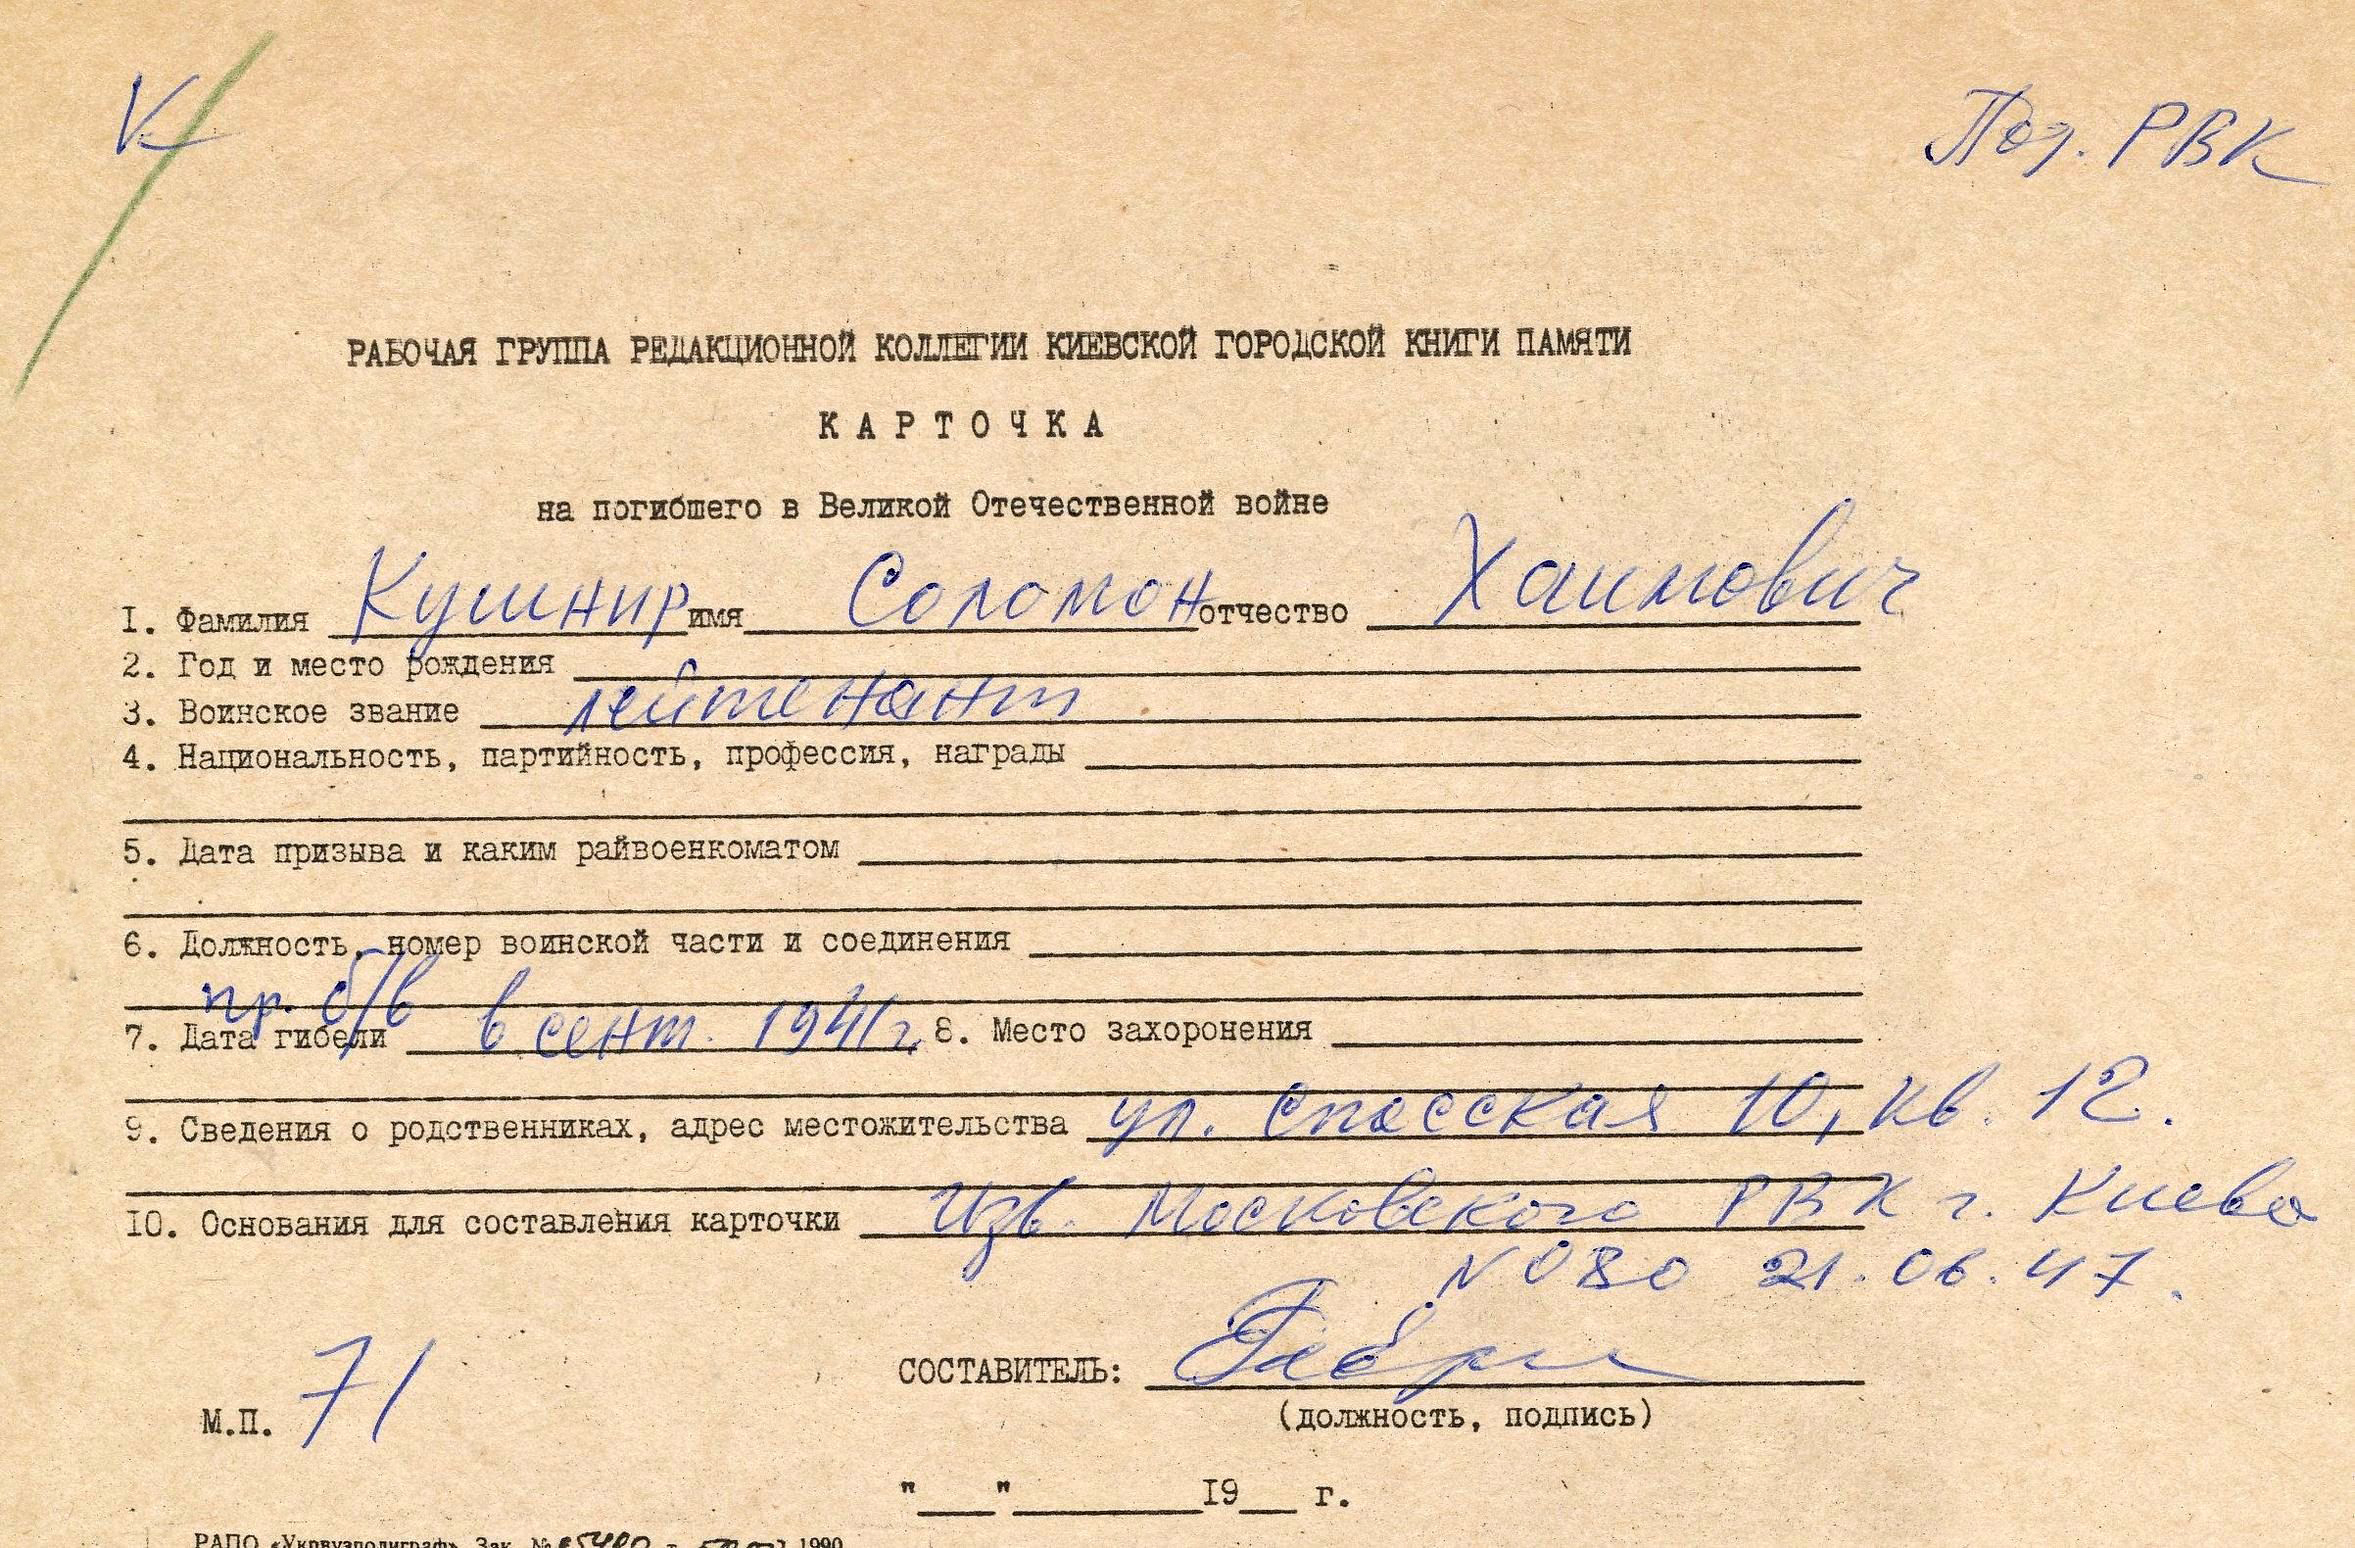 К
Под. РВК
РАБОЧАЯ ГРУППА РЕДАКЦИОННОЙ КОЛЛЕГИИ КИЕВСКОЙ ГОРОДСКОЙ КНИГИ ПАМЯТИ
КАРТОЧКА
на погибшего в Великой Отечественной войне
I. Фамилия Кушнир имя Соломон отчество Хаимович
2. Год и место рождения
3. Воинское звание лейтенант
4. Национальность, партийность, профессия, награды
5. Дата призыва и каким райвоенкоматом
6. Должность, номер воинской части и соединения
пр. б/в
7. Дата гибели в сент. 1941 г. 8. Место захоронения
9. Сведения о родственниках, адрес местожительства ул. Спасская 10, кв. 12.
10. Основания для составления карточки Изв. Московского РВК г. Киева
N 080 21.06.47.
СОСТАВИТЕЛЬ:
М.П. 71
(должность, подпись)
"___"__________19___ г.
РАПО «Укрвузполиграф». Зак. № 1990